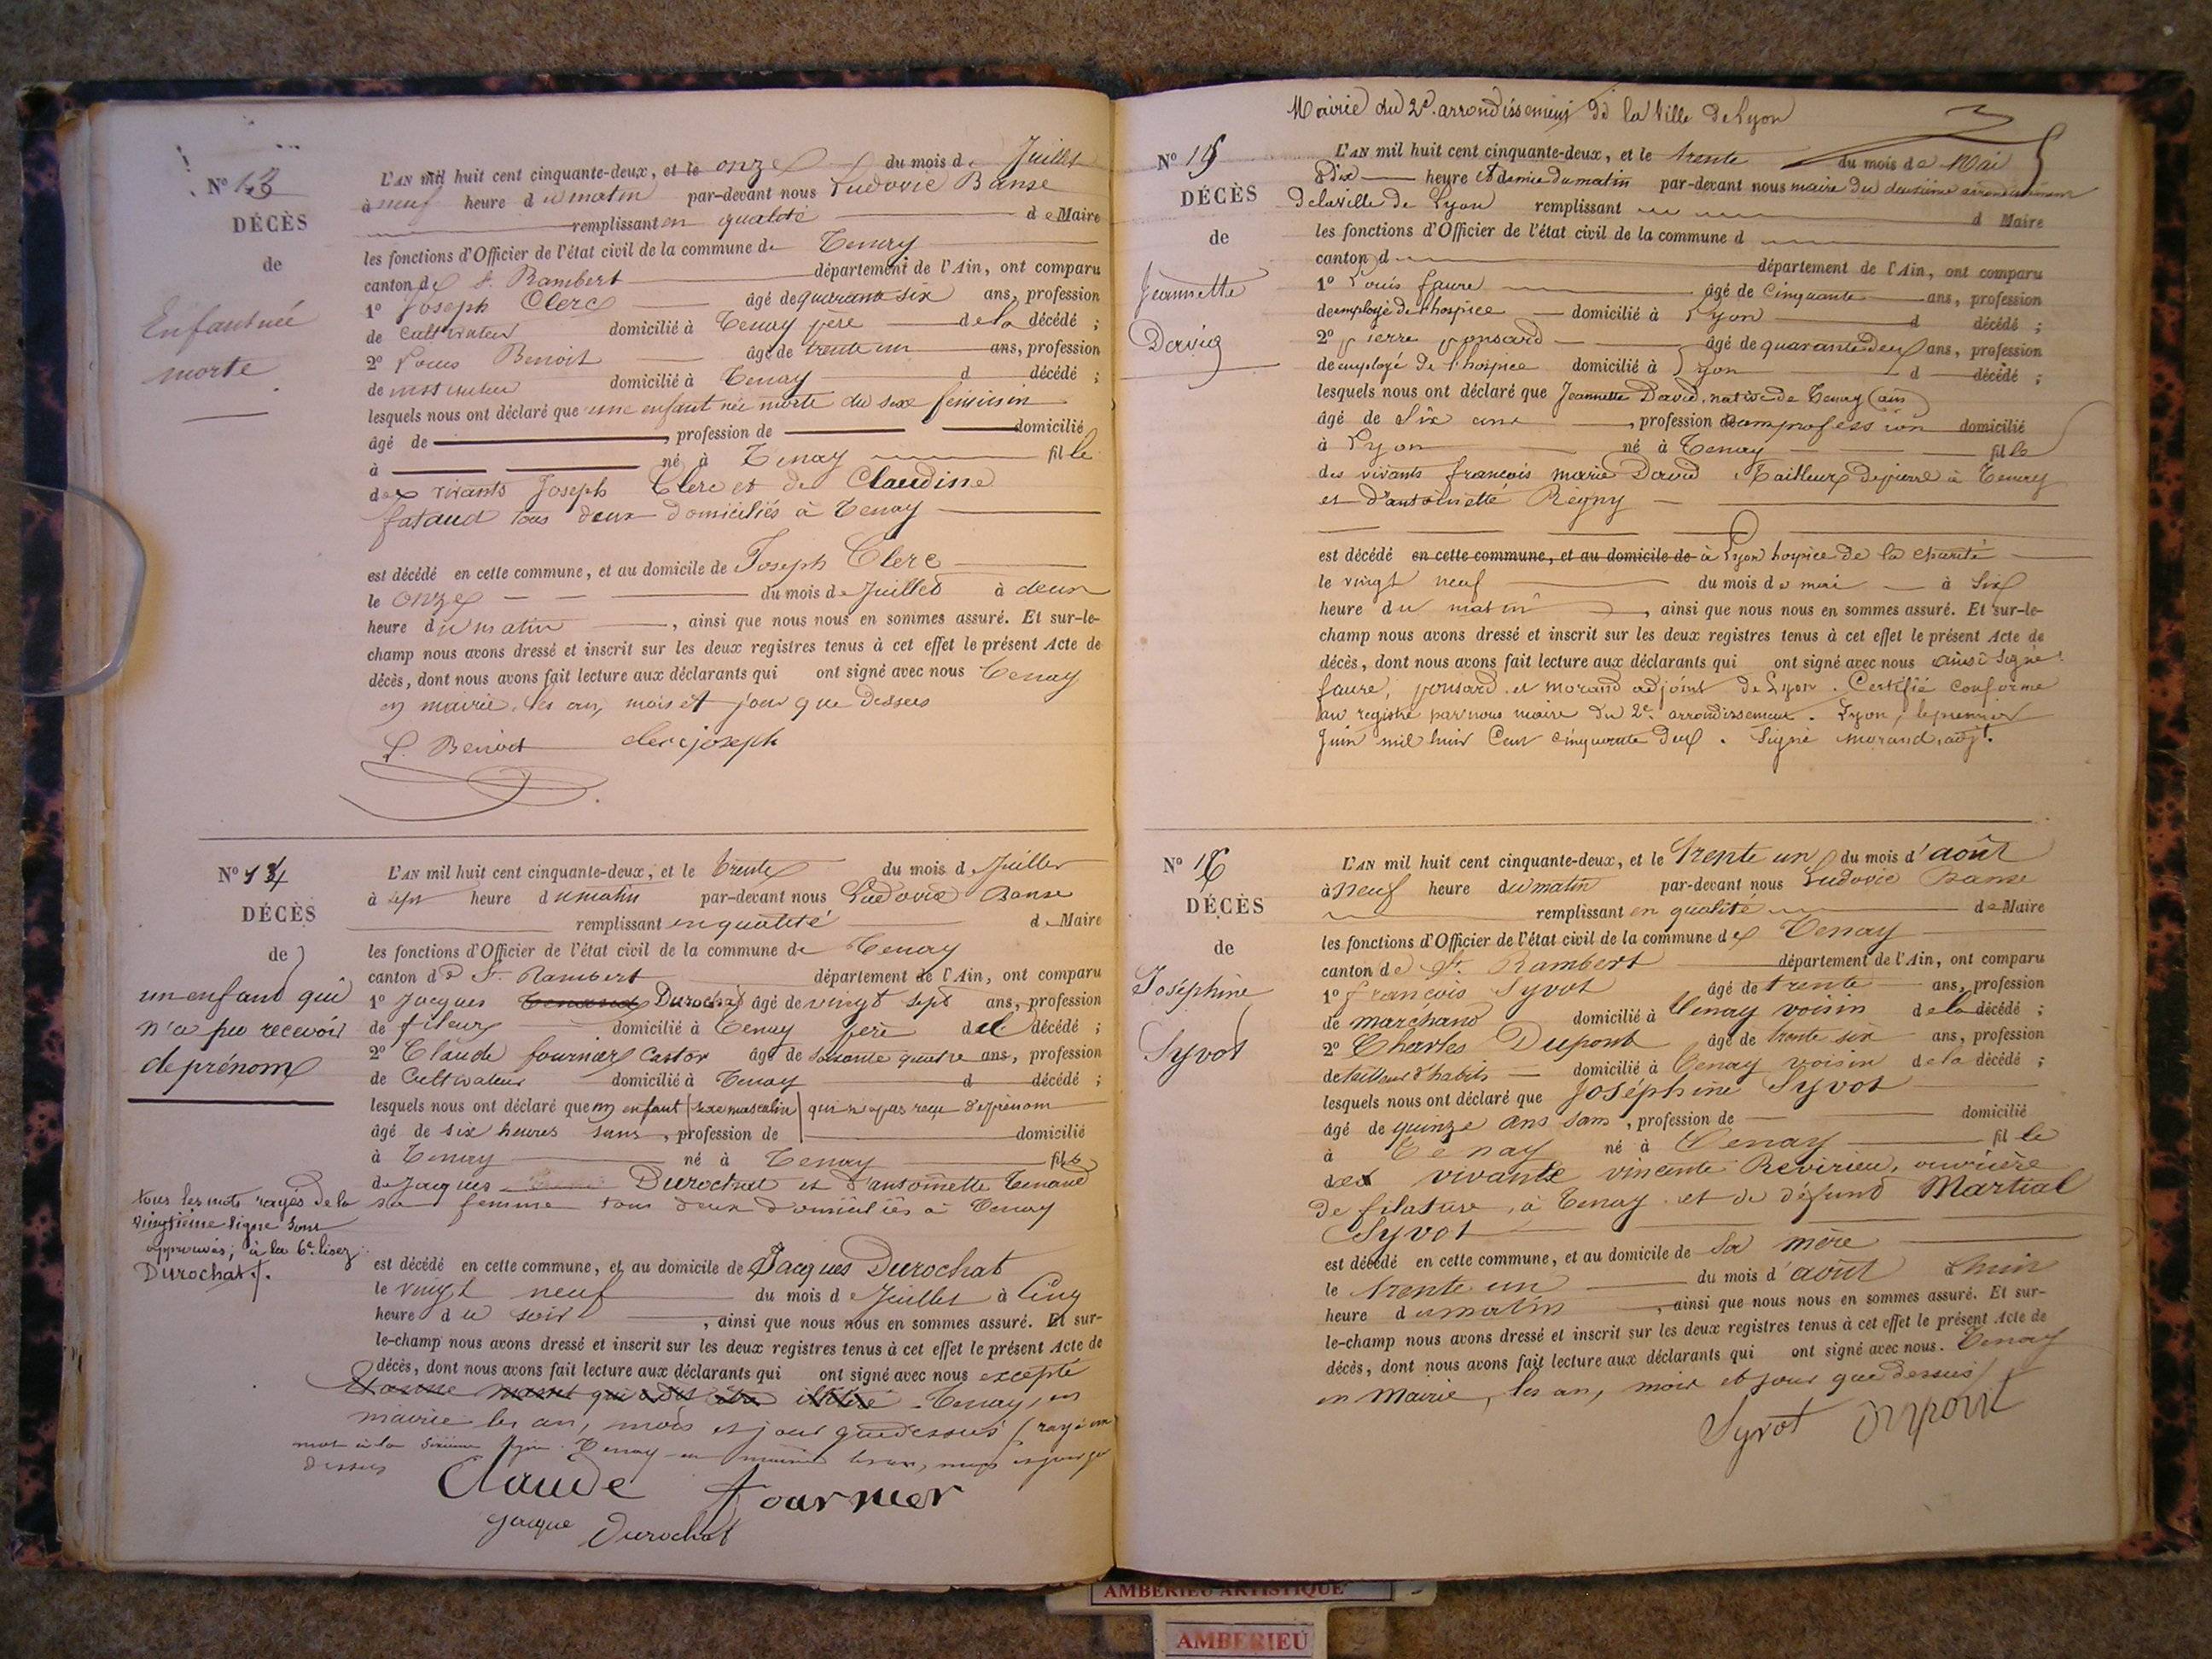 N° 13
DÉCÈS
de
Enfant née
morte
L'AN mil huit cent cinquante-deux, et le onze du mois de Juillet
à neuf heure du matin par-devant nous Ludovic Banse
remplissant en qualité de Maire
les fonctions d'Officier de l'état civil de la commune de Tenay
canton de St. Rambert département de l'Ain, ont comparu
1° Joseph Clerc âgé de quarante six ans, profession
de Cultivateur domicilié à Tenay père de la décédé ;
2° Louis Benoit âgé de trente un ans, profession
de instituteur domicilié à Tenay d décédé ;
lesquels nous ont déclaré que une enfant née morte du sexe féminin
âgé de , profession de domicilié
à né à Tenay fille
des vivants Joseph Clerc et de Claudine
fataud tous deux domiciliés à Tenay
est décédé en cette commune, et au domicile de Joseph Clerc
le onze du mois de Juillet à deux
heure du matin , ainsi que nous nous en sommes assuré. Et sur-le-
champ nous avons dressé et inscrit sur les deux registres tenus à cet effet le présent Acte de
décès, dont nous avons fait lecture aux déclarants qui ont signé avec nous Tenay
en mairie, les an, mois et jour que dessus
L. Benoit clerc joseph
N° 14
DÉCÈS
de
un enfant qui
n'a pu recevoir
de prénom
tous les mots rayés de la
vingtième ligne sont
approuvés; à la 6e. lisez
Durochat.
L'AN mil huit cent cinquante-deux, et le trente du mois de Juillet
à sept heure du matin par-devant nous Ludovic Banse
remplissant en qualité de Maire
les fonctions d'Officier de l'état civil de la commune de Tenay
canton de St. Rambert département de l'Ain, ont comparu
1° Jacques Durochat âgé de vingt sept ans, profession
de fileur domicilié à Tenay père del décédé ;
2° Claude fournier Castor âgé de soixante quatre ans, profession
de Cultivateur domicilié à Tenay d décédé ;
lesquels nous ont déclaré que un enfant (sexe masculin) qui n'a pas reçu de prénom
âgé de six heures sans , profession de domicilié
à Tenay né à Tenay fils
de Jacques Durochat et d'antoinette Tenand
sa femme tous deux domiciliés à Tenay
est décédé en cette commune, et au domicile de Jacques Durochat
le vingt neuf du mois de Juillet à Cinq
heure du soir , ainsi que nous nous en sommes assuré. Et sur-
le-champ nous avons dressé et inscrit sur les deux registres tenus à cet effet le présent Acte de
décès, dont nous avons fait lecture aux déclarants qui ont signé avec nous excepté
qui a dit être illitéré. Tenay, en
mairie les an, mois et jour que dessus (rayé un
mot à la sixième ligne. Tenay en mairie les an, mois et jour que
dessus
Claude fournier
jacque Durochat
Mairie du 2e. arrondissement de la Ville de Lyon
N° 15
DÉCÈS
de
Jeannette
David
L'AN mil huit cent cinquante-deux, et le trente du mois de Mai
à Dix heure et demie du matin par-devant nous maire du deuxième arrondissement
de la ville de Lyon remplissant d Maire
les fonctions d'Officier de l'état civil de la commune d
canton d département de l'Ain, ont comparu
1° Louis faure âgé de Cinquante ans, profession
de employé de l'hospice domicilié à Lyon d décédé ;
2° pierre ponsard âgé de quarante deux ans, profession
de employé de l'hospice domicilié à Lyon d décédé ;
lesquels nous ont déclaré que Jeannette David, native de Tenay (ain)
âgé de Six ans , profession sans profession domicilié
à Lyon né à Tenay fille
des vivants françois marie David tailleur de pierre à Tenay
et d'antoinette Régny
est décédé en cette commune, et au domicile de à Lyon hospice de la charité
le vingt neuf du mois de mai à Six
heure du matin , ainsi que nous nous en sommes assuré. Et sur-le-
champ nous avons dressé et inscrit sur les deux registres tenus à cet effet le présent Acte de
décès, dont nous avons fait lecture aux déclarants qui ont signé avec nous ainsi signé
faure, ponsard et morand adjoint de Lyon. Certifié conforme
au registre par nous maire du 2e. arrondissement. Lyon, le premier
Juin mil huit Cent cinquante deux. Signé morand, adjt.
N° 16
DÉCÈS
de
Joséphine
Syvot
L'AN mil huit cent cinquante-deux, et le trente un du mois d'août
à neuf heure du matin par-devant nous Ludovic Banse
remplissant en qualité de Maire
les fonctions d'Officier de l'état civil de la commune de Tenay
canton de St. Rambert département de l'Ain, ont comparu
1° françois Syvot âgé de trente ans, profession
de marchand domicilié à Tenay voisin de la décédé ;
2° Charles Dupont âgé de trente six ans, profession
de tailleur d'habits domicilié à Tenay voisin de la décédé ;
lesquels nous ont déclaré que Joséphine Syvot
âgé de quinze ans sans , profession de domicilié
à Tenay né à Tenay fille
de vivante vincente Revirieu, ouvrière
de filature, à Tenay et de défunt Martial
Syvot
est décédé en cette commune, et au domicile de sa mère
le trente un du mois d'août à huit
heure du matin , ainsi que nous nous en sommes assuré. Et sur-
le-champ nous avons dressé et inscrit sur les deux registres tenus à cet effet le présent Acte de
décès, dont nous avons fait lecture aux déclarants qui ont signé avec nous. Tenay
en Mairie, les an, mois et jour que dessus
Syvot Dupont
AMBERIEU ARTISTIQUE
AMBERIEU